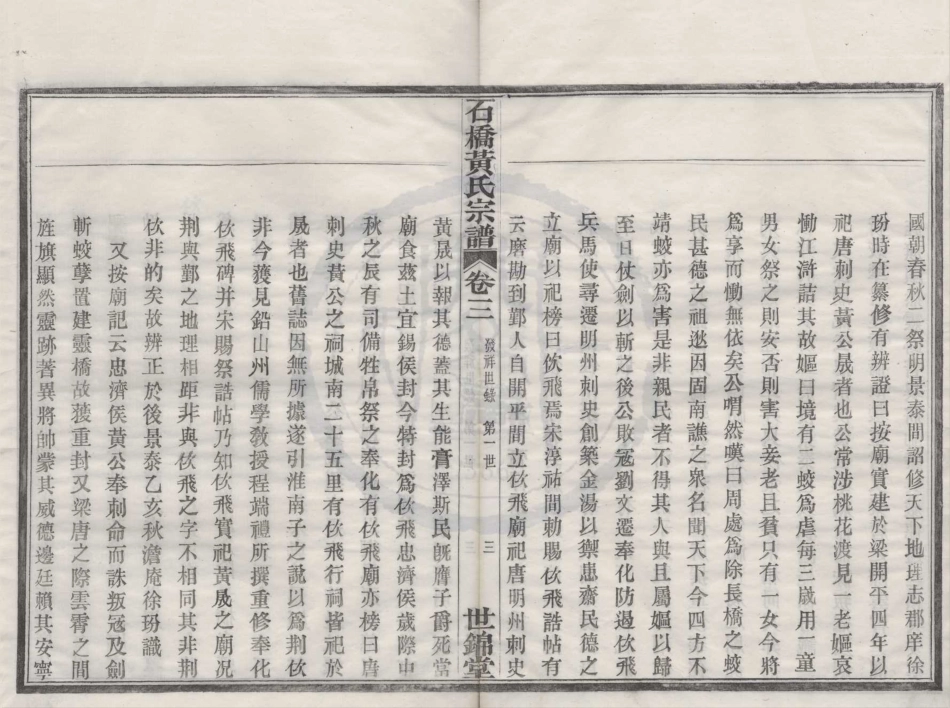 國朝春秋二祭明景泰間詔修天下地理志郡庠徐
玢時在纂修有辨證曰按廟實建於梁開平四年以
祀唐刺史黃公晟者也公常涉桃花渡見一老嫗哀
慟江滸詰其故嫗曰境有二蛟爲虐每三歲用一童
男女祭之則安否則害大妾老且貧只有一女今將
爲享而慟無依矣公喟然嘆曰周處爲除長橋之蛟
民甚德之祖逖因固南譙之衆名聞天下今四方不
靖蛟亦爲害是非親民者不得其人與且屬嫗以歸
至日仗劍以斬之後公敗冦劉文遷奉化防遏佽飛
兵馬使尋遷明州刺史創築金湯以禦患齋民德之
立廟以祀榜曰佽飛焉宋淳祐間勅賜佽飛誥帖有
云磨勘到鄞人自開平間立佽飛廟祀唐明州刺史
石橋黃氏宗譜 卷三 發祥世錄 第一世 三 世錦堂
黃晟以報其德蓋其生能膏澤斯民旣膺子爵死當
廟食茲土宜錫侯封今特封爲佽飛忠濟侯歲際中
秋之辰有司備牲帛祭之奉化有佽飛廟亦榜曰唐
刺史黃公之祠城南二十五里有佽飛行祠皆祀於
晟者也舊誌因無所據遂引淮南子之說以爲荆佽
非今獲見鉛山州儒學敎授程端禮所撰重修奉化
佽飛碑并宋賜祭誥帖乃知佽飛實祀黃晟之廟况
荆與鄞之地理相距非與佽飛之字不相同其非荆
佽非的矣故辨正於後景泰乙亥秋澹庵徐玢識
又按廟記云忠濟侯黃公奉刺命而誅叛冦及劍
斬蛟孽置建靈橋故獲重封又梁唐之際雲霄之間
旌旗顯然靈跡著異將帥蒙其威德邊廷賴其安寧